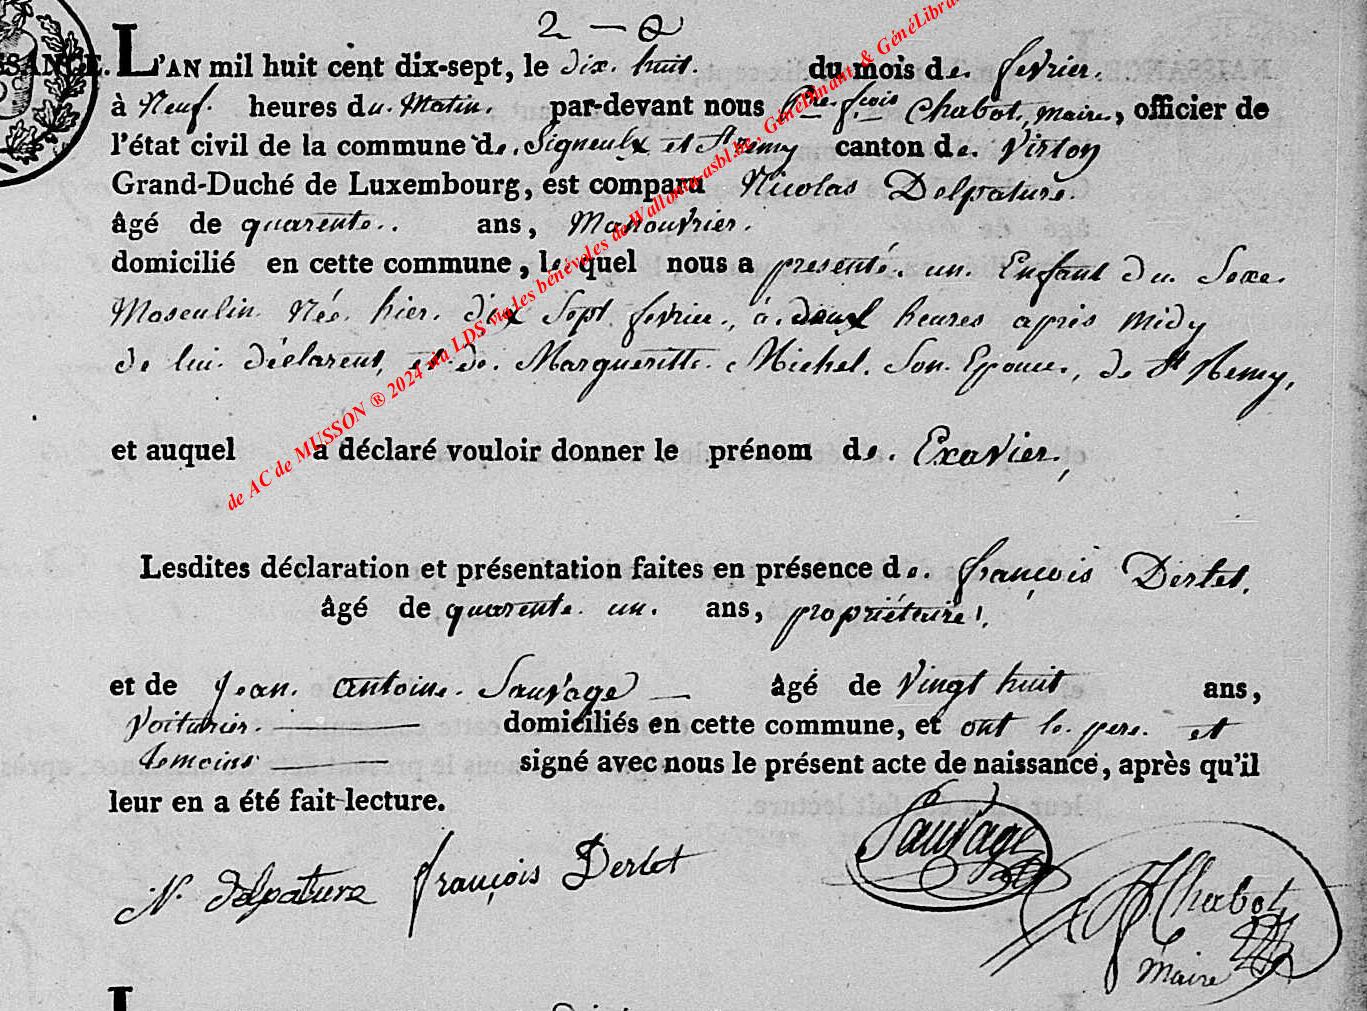 2 — a
SSANCE. L'AN mil huit cent dix-sept, le dix. huit. du mois de. fevrier.
à Neuf. heures du. Matin. par-devant nous Pre. fçois Chabot, maire, officier de
l'état civil de la commune de. Signeulx et St Remy canton de. Virton
Grand-Duché de Luxembourg, est comparu Nicolas Delpature.
âgé de quarente.. ans, Manouvrier.
domicilié en cette commune, lequel nous a presenté. un. Enfant du Sexe.
Masculin. Née. hier. dix Sept fevrier., à. deux heures après midy
de lui. déclarent, et de. Margueritte. Michel. Son. Epouce, de St Remy,
et auquel a déclaré vouloir donner le prénom de. Exavier.,
Lesdites déclaration et présentation faites en présence de. françois Dertet.
âgé de quarente. un. ans, propriétaire,
et de Jean. Antoine. Sauvage — âgé de Vingt huit ans,
Voiturier. — domiciliés en cette commune, et ont le. pere. et
temoins — signé avec nous le présent acte de naissance, après qu'il
leur en a été fait lecture.
N. Delpature françois Dertet Sauvage Chabot
Maire
de AC de MUSSON ® 2024 via LDS via les bénévoles de Wallonia-asbl.be, GénéDinant & GénéLibra